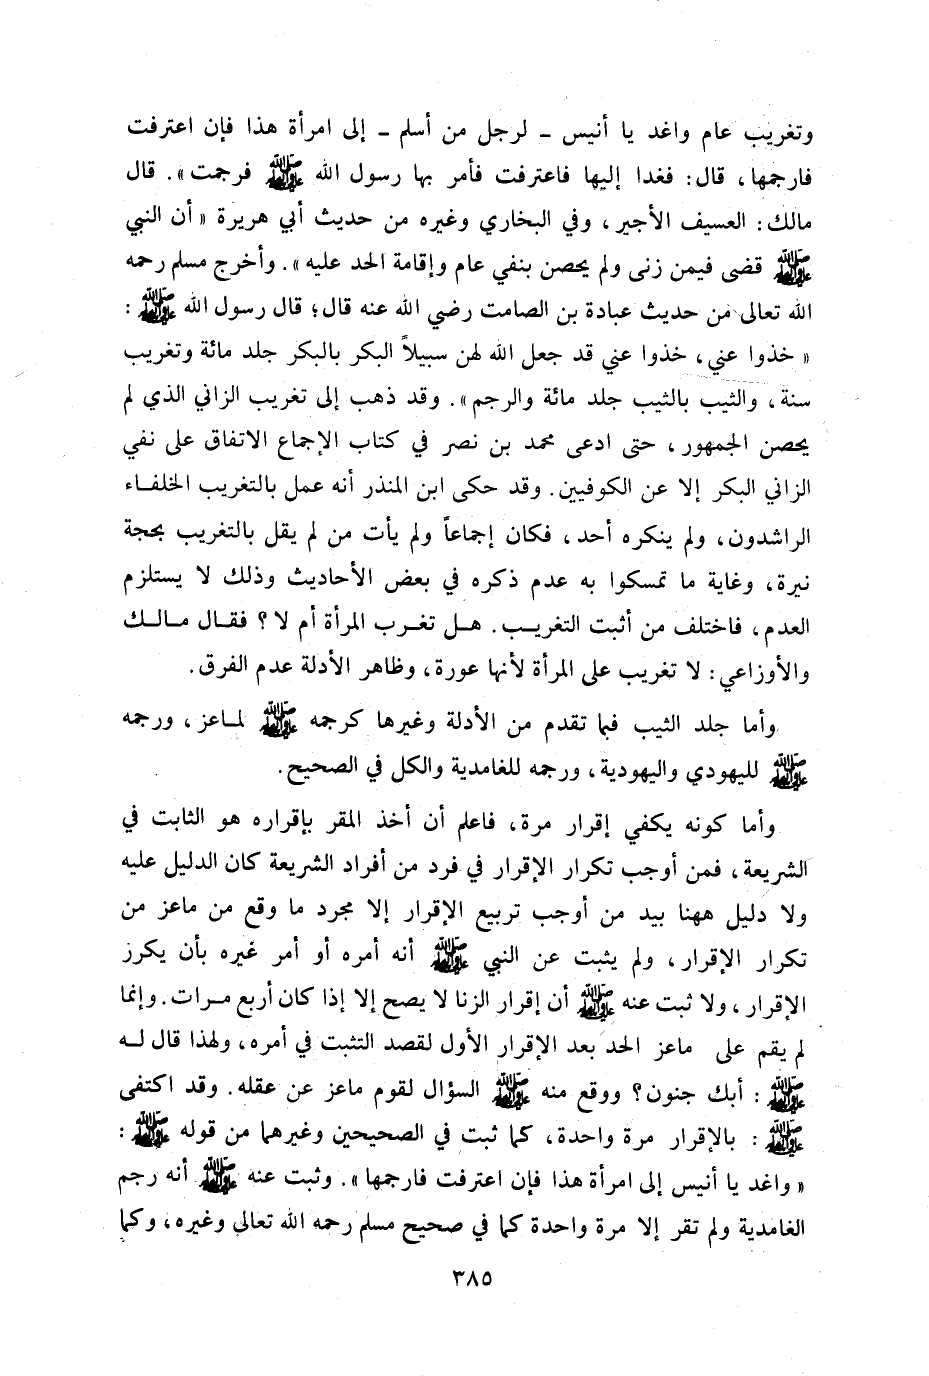 وتغريب عام واغد يا أنيس - لرجل من أسلم - إلى امرأة هذا فإن اعترفت
فارجمها، قال: فغدا إليها فاعترفت فأمر بها رسول الله ﷺ فرجمت». قال
مالك: العسيف الأجير، وفي البخاري وغيره من حديث أبي هريرة «أن النبي
ﷺ قضى فيمن زنى ولم يحصن بنفي عام وإقامة الحد عليه». وأخرج مسلم رحمه
الله تعالى من حديث عبادة بن الصامت رضي الله عنه قال؛ قال رسول الله ﷺ:
«خذوا عني، خذوا عني قد جعل الله لهن سبيلاً البكر بالبكر جلد مائة وتغريب
سنة، والثيب بالثيب جلد مائة والرجم». وقد ذهب إلى تغريب الزاني الذي لم
يحصن الجمهور، حتى ادعى محمد بن نصر في كتاب الإجماع الاتفاق على نفي
الزاني البكر إلا عن الكوفيين. وقد حكى ابن المنذر أنه عمل بالتغريب الخلفاء
الراشدون، ولم ينكره أحد، فكان إجماعاً ولم يأت من لم يقل بالتغريب بحجة
نيرة، وغاية ما تمسكوا به عدم ذكره في بعض الأحاديث وذلك لا يستلزم
العدم، فاختلف من أثبت التغريب. هل تغرب المرأة أم لا؟ فقال مالك
والأوزاعي: لا تغريب على المرأة لأنها عورة، وظاهر الأدلة عدم الفرق.
وأما جلد الثيب فبما تقدم من الأدلة وغيرها كرجمه ﷺ لماعز، ورجمه
ﷺ لليهودي واليهودية، ورجمه للغامدية والكل في الصحيح.
وأما كونه يكفي إقرار مرة، فاعلم أن أخذ المقر بإقراره هو الثابت في
الشريعة، فمن أوجب تكرار الإقرار في فرد من أفراد الشريعة كان الدليل عليه
ولا دليل ههنا بيد من أوجب تربيع الإقرار إلا مجرد ما وقع من ماعز من
تكرار الإقرار، ولم يثبت عن النبي ﷺ أنه أمره أو أمر غيره بأن يكرر
الإقرار، ولا ثبت عنه ﷺ أن إقرار الزنا لا يصح إلا إذا كان أربع مرات. وإنما
لم يقم على ماعز الحد بعد الإقرار الأول لقصد التثبت في أمره، ولهذا قال له
ﷺ: أبك جنون؟ ووقع منه ﷺ السؤال لقوم ماعز عن عقله. وقد اكتفى
ﷺ: بالإقرار مرة واحدة، كما ثبت في الصحيحين وغيرهما من قوله ﷺ:
«واغد يا أنيس إلى امرأة هذا فإن اعترفت فارجمها». وثبت عنه ﷺ أنه رجم
الغامدية ولم تقر إلا مرة واحدة كما في صحيح مسلم رحمه الله تعالى وغيره، وكما
٣٨٥